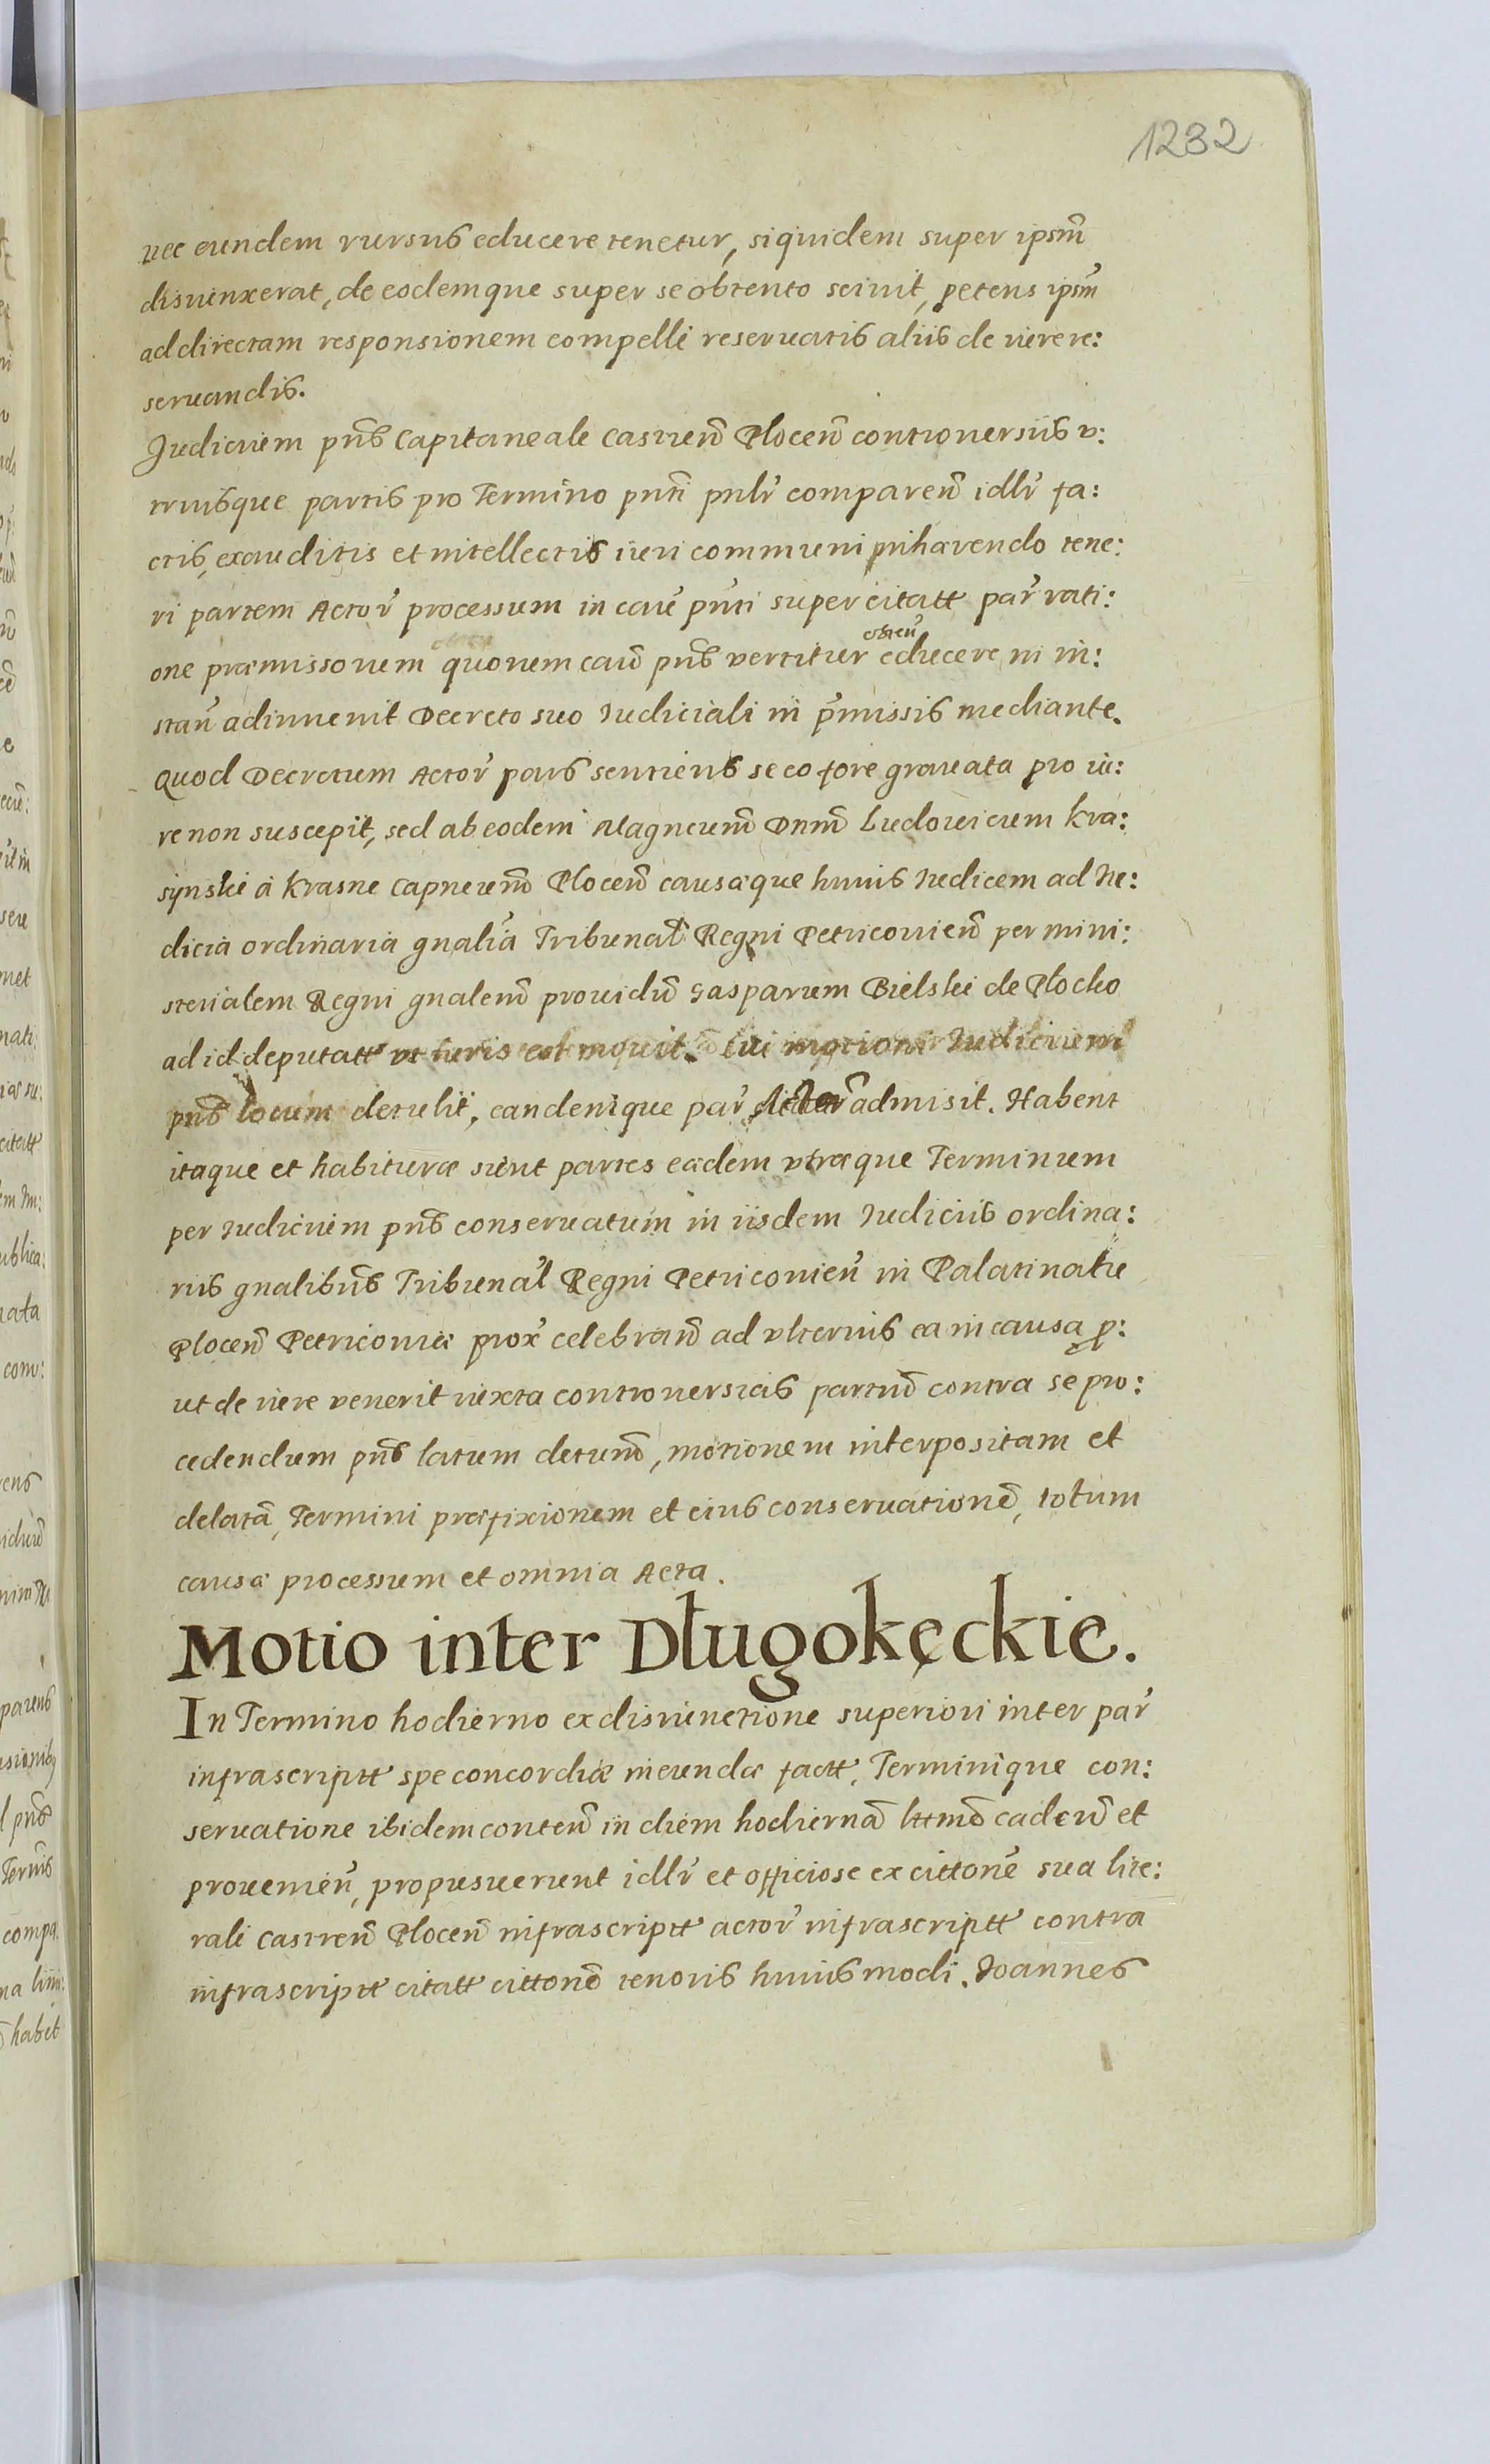 1232
nec eundem rursus educere tenetur, siquidem super ipsm̃
disiunxerat, de eodemque super se obtento sciuit, petens ipsm̃
ad directam responsionem compelli reseruatis aliis de iure re:
seruandis.
Judicium pñs Capitaneale Castreñ Ploceñ controuersiis v:
triusque partis pro Termino pñti pnlr̃ compareñ idlr̃ fa:
ctis, exauditis et intellectis iuri communi inhærendo tene:
ri partem Actor̃ processum in cau᷈ pñti super citatt par̃ rati:
one præmissorum quorum cau᷈ pñs vertitur obteñ educere in in:
stañ adinuenit Decreto suo Judiciali in p̃missis mediante.
Quod Decretum Actor̃ pars sentiens se eo fore grauata pro iu:
re non suscepit, sed ab eodem Magncum̃ Dnm̃ Ludouicum Kra:
synski a Krasne Capneum̃ Ploceñ causæque huius Judicem ad Ju:
dicia ordinaria gnalia᷈ Tribunal᷈ Regni Petricouieñ per mini:
sterialem Regni gnalem̃ prouidu᷈ Gasparum Bielski de Plocko
ad id deputatt vt iuris est mouit. Cui motioni Judicium
pñs locum detulit, eandemque par̃ Actor̃ admisit. Habent
itaque et habituræ sunt partes eædem vtræque Terminum
per Judicium pñs conseruatum in iisdem Judiciis ordina:
riis gnalibus᷈ Tribunal᷈ Regni Petricouieñ in Palatinatu
Ploceñ Petricouiæ prox̃ celebrañ ad vlterius ea in causa p̱:
ut de iure venerit iuxta controuersias partiu᷈ contra se pro:
cedendum pñs latum detum̃, motionem interpositam et
delatã, Termini præfixionem et eius conseruationẽ, totum
causæ processum et omnia Acta.
Motio inter Długokęckie.
In Termino hodierno ex disiunctione superiori inter par̃
infrascriptt spe concordiæ ineundæ factt, Terminique con:
seruatione ibidem conteñ in diem hodiernã lttmẽ cadeñ et
prouenieñ, propusuerunt idlr̃ et officiose ex cittonẽ sua lite:
rali Castreñ Ploceñ infrascriptt actor̃ infrascriptt contra
infrascriptt citatt cittonẽ tenoris huiusmodi. Joannes